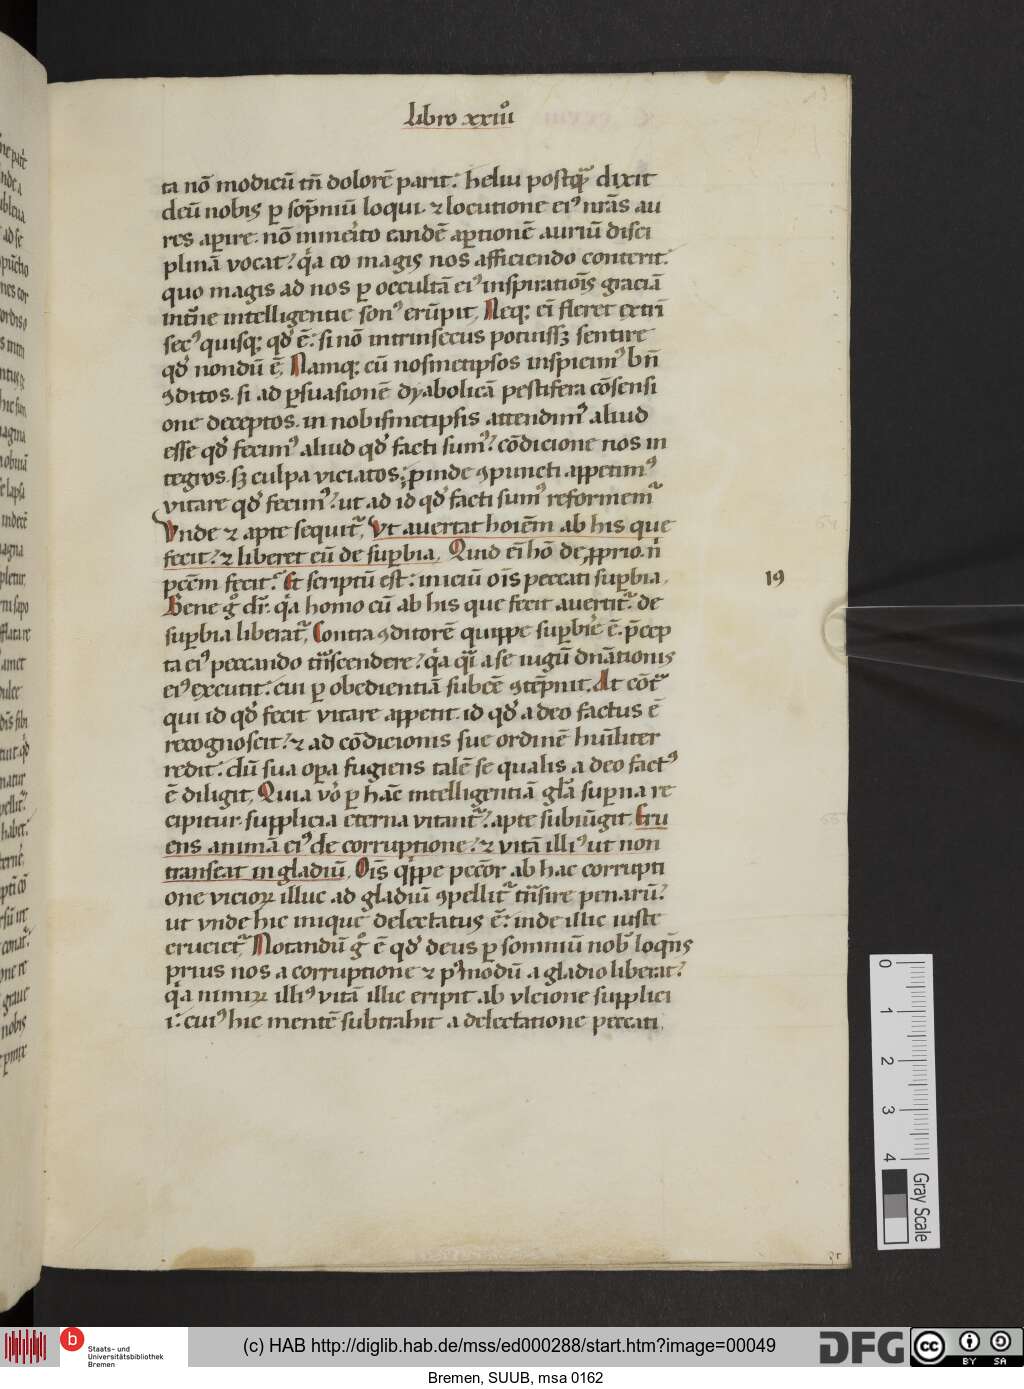 libro xxiiiͦ
ta nō modicū tn̄ dolorē parit. heliu postqͣ dixit
deū nobis ꝑ sop̄niū loqui. ⁊ locutione eiꝰ nr̄as au
res aꝑire. nō inmerito eandē aꝑtionē auriū disci
plinā vocat. qͥa eo magis nos afficiendo conterit.
quo magis ad nos ꝑ occultā eiꝰ inspiratiōis graciā
int̄ne intelligentie sonꝰ erūpit. Neqꝫ ei̅ fleret extri
secꝰ quisqꝫ qd̓ ē. si nō intrinsecus potuissꝫ sentire
qd̓ nondū ē. Namqꝫ cū nosmetipsos inspicimꝰ bn̄
ꝯditos. si ad ꝑsuasionē dyabolicā pestifera cōsensi
one deceptos. in nobismetipsis attendimꝰ aliud
esse qd̓ fecimꝰ aliud qd̓ facti sumꝰ. cōdicione nos in
tegros. sꝫ culpa viciatos. ꝓinde ꝯpuncti appetimꝰ
vitare qd̓ fecimꝰ. ut ad id qd̓ facti sumꝰ reformemᷣ
Vnde ⁊ apte sequitᷣ. Vt auertat hoiēm ab his que
fecit. ⁊ liberet eū de suꝑbia. Quid ei̅ hō de ꝓprio. n̄
pc̄cm fecit. Et scriptū est. iniciū oi̅s peccati suꝑbia.
Bene gͦ dr̄. qͥa homo cū ab his que fecit auertitᷣ. de
suꝑbia liberatᷣ. Contra ꝯditorē quippe suꝑbire ē. p̄cep
ta eiꝰ peccando tn̄scendere. qͥa qͥ a se iugū dn̄ationis
eiꝰ excutit. cui ꝑ obedientiā subeē ꝯtēpnit. At cōtᷣ
qui id qd̓ fecit vitare appetit. id qd̓ a deo factus ē
recognoscit. ⁊ ad cōdicionis sue ordinē hūiliter
redit. dū sua oꝑa fugiens talē se qualis a deo factꝰ
ē diligit. Quia vo̓ ꝑ hāc intelligentiā gl̄a suꝑna re
cipitur. supplicia eterna vitantᷣ. apte subiūgit. Eru
ens animā eiꝰ de corruptione. ⁊ vitā illiꝰ ut non
transeat in gladiū. Oi̅s qͥppe pecc̄or ab hac corrupti
one vicioꝝ illuc ad gladiū ꝯpellitᷣ tn̄sire penarū.
ut vnde hic inique delectatus ē. inde illic iuste
crucietᷣ. Notandū gͦ ē qd̓ deus ꝑ somniū nob̄ loqn̄s
prius nos a corruptione ⁊ pꝰmodū a gladio liberat.
qͥa nimiꝝ illiꝰ vitā illic eripit ab vlcione supplici
i. cuiꝰ hic mentē subtrahit a delectatione peccati.
19
0
1
2
3
4
Gray Scale
Staats- und
Universitätsbibliothek
Bremen
(c) HAB http://diglib.hab.de/mss/ed000288/start.htm?image=00049
DFG
cc
BY SA
Bremen, SUUB, msa 0162